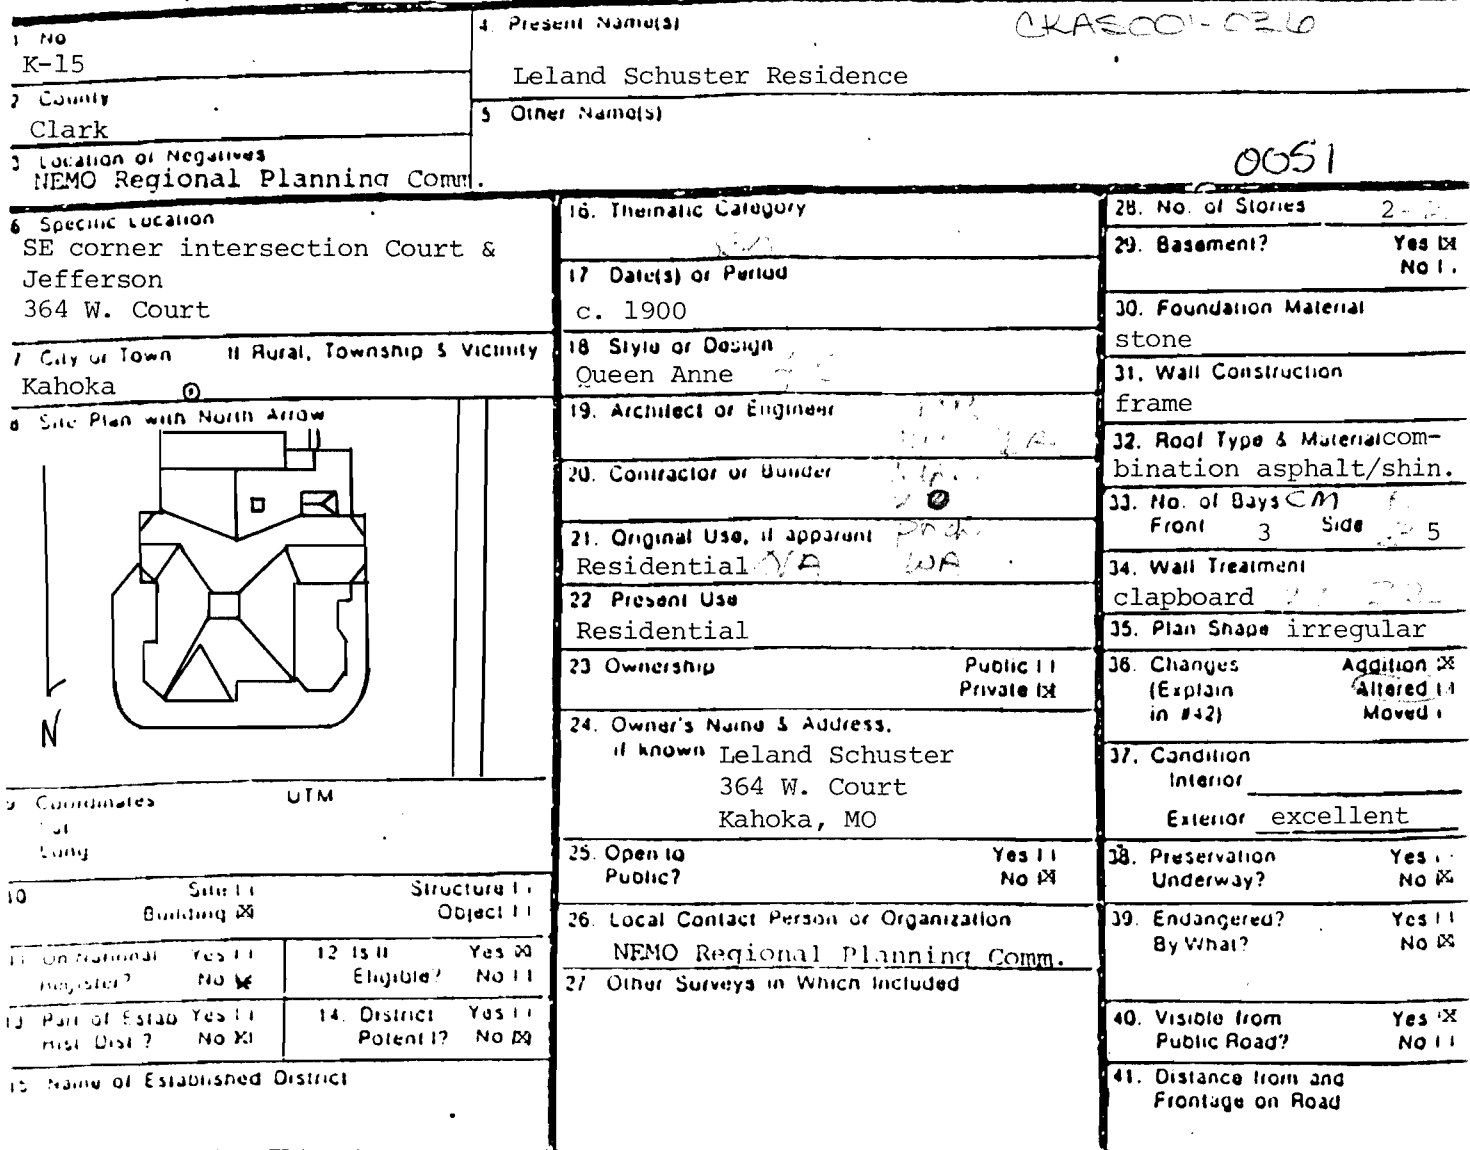 1 No
K-15
4. Present Name(s)
CKAS001-036
Leland Schuster Residence
2 County
Clark
5 Other Name(s)
3 Location of Negatives
NEMO Regional Planning Comm.
0051
6 Specific Location
SE corner intersection Court &
Jefferson
364 W. Court
7 City or Town If Rural, Township & Vicinity
Kahoka
8 Site Plan with North Arrow
N
9 Coordinates UTM
Lat
Long
10 Site
Structure
Building X
Object
11 On National Register? Yes
No X
12 Is It Eligible? Yes X
No
13 Part of Estab Hist. Dist.? Yes
No X
14. District Potent'l? Yes
No X
15 Name of Established District
16. Thematic Category
17 Date(s) or Period
c. 1900
18 Style or Design
Queen Anne
19. Architect or Engineer
20. Contractor or Builder
21. Original Use, if apparent
Residential
WA
22 Present Use
Residential
23 Ownership Public
Private X
24. Owner's Name & Address,
if known Leland Schuster
364 W. Court
Kahoka, MO
25. Open to Public? Yes
No X
26. Local Contact Person or Organization
NEMO Regional Planning Comm.
27 Other Surveys in Which Included
28. No. of Stories 2
29. Basement? Yes X
No
30. Foundation Material
stone
31. Wall Construction
frame
32. Roof Type & Material com-
bination asphalt/shin.
33. No. of Bays CM
Front 3 Side 5
34. Wall Treatment
clapboard
35. Plan Shape irregular
36. Changes Addition X
(Explain Altered
in #42) Moved
37. Condition
Interior
Exterior excellent
38. Preservation Yes
Underway? No X
39. Endangered? Yes
By What? No X
40. Visible from Yes X
Public Road? No
41. Distance from and
Frontage on Road